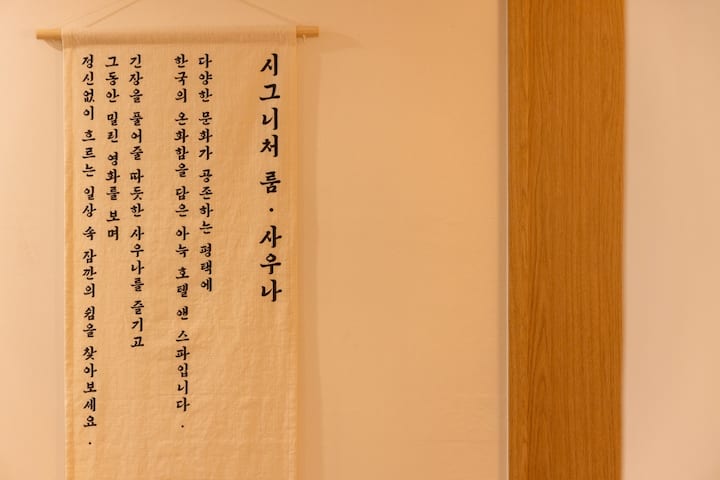 시그니처 룸 · 사우나
다양한 문화가 공존하는 평택에
한국의 온화함을 담은 아늑 호텔 앤 스파입니다.
긴장을 풀어줄 따듯한 사우나를 즐기고
그동안 밀린 영화를 보며
정신없이 흐르는 일상 속 잠깐의 쉼을 찾아보세요.